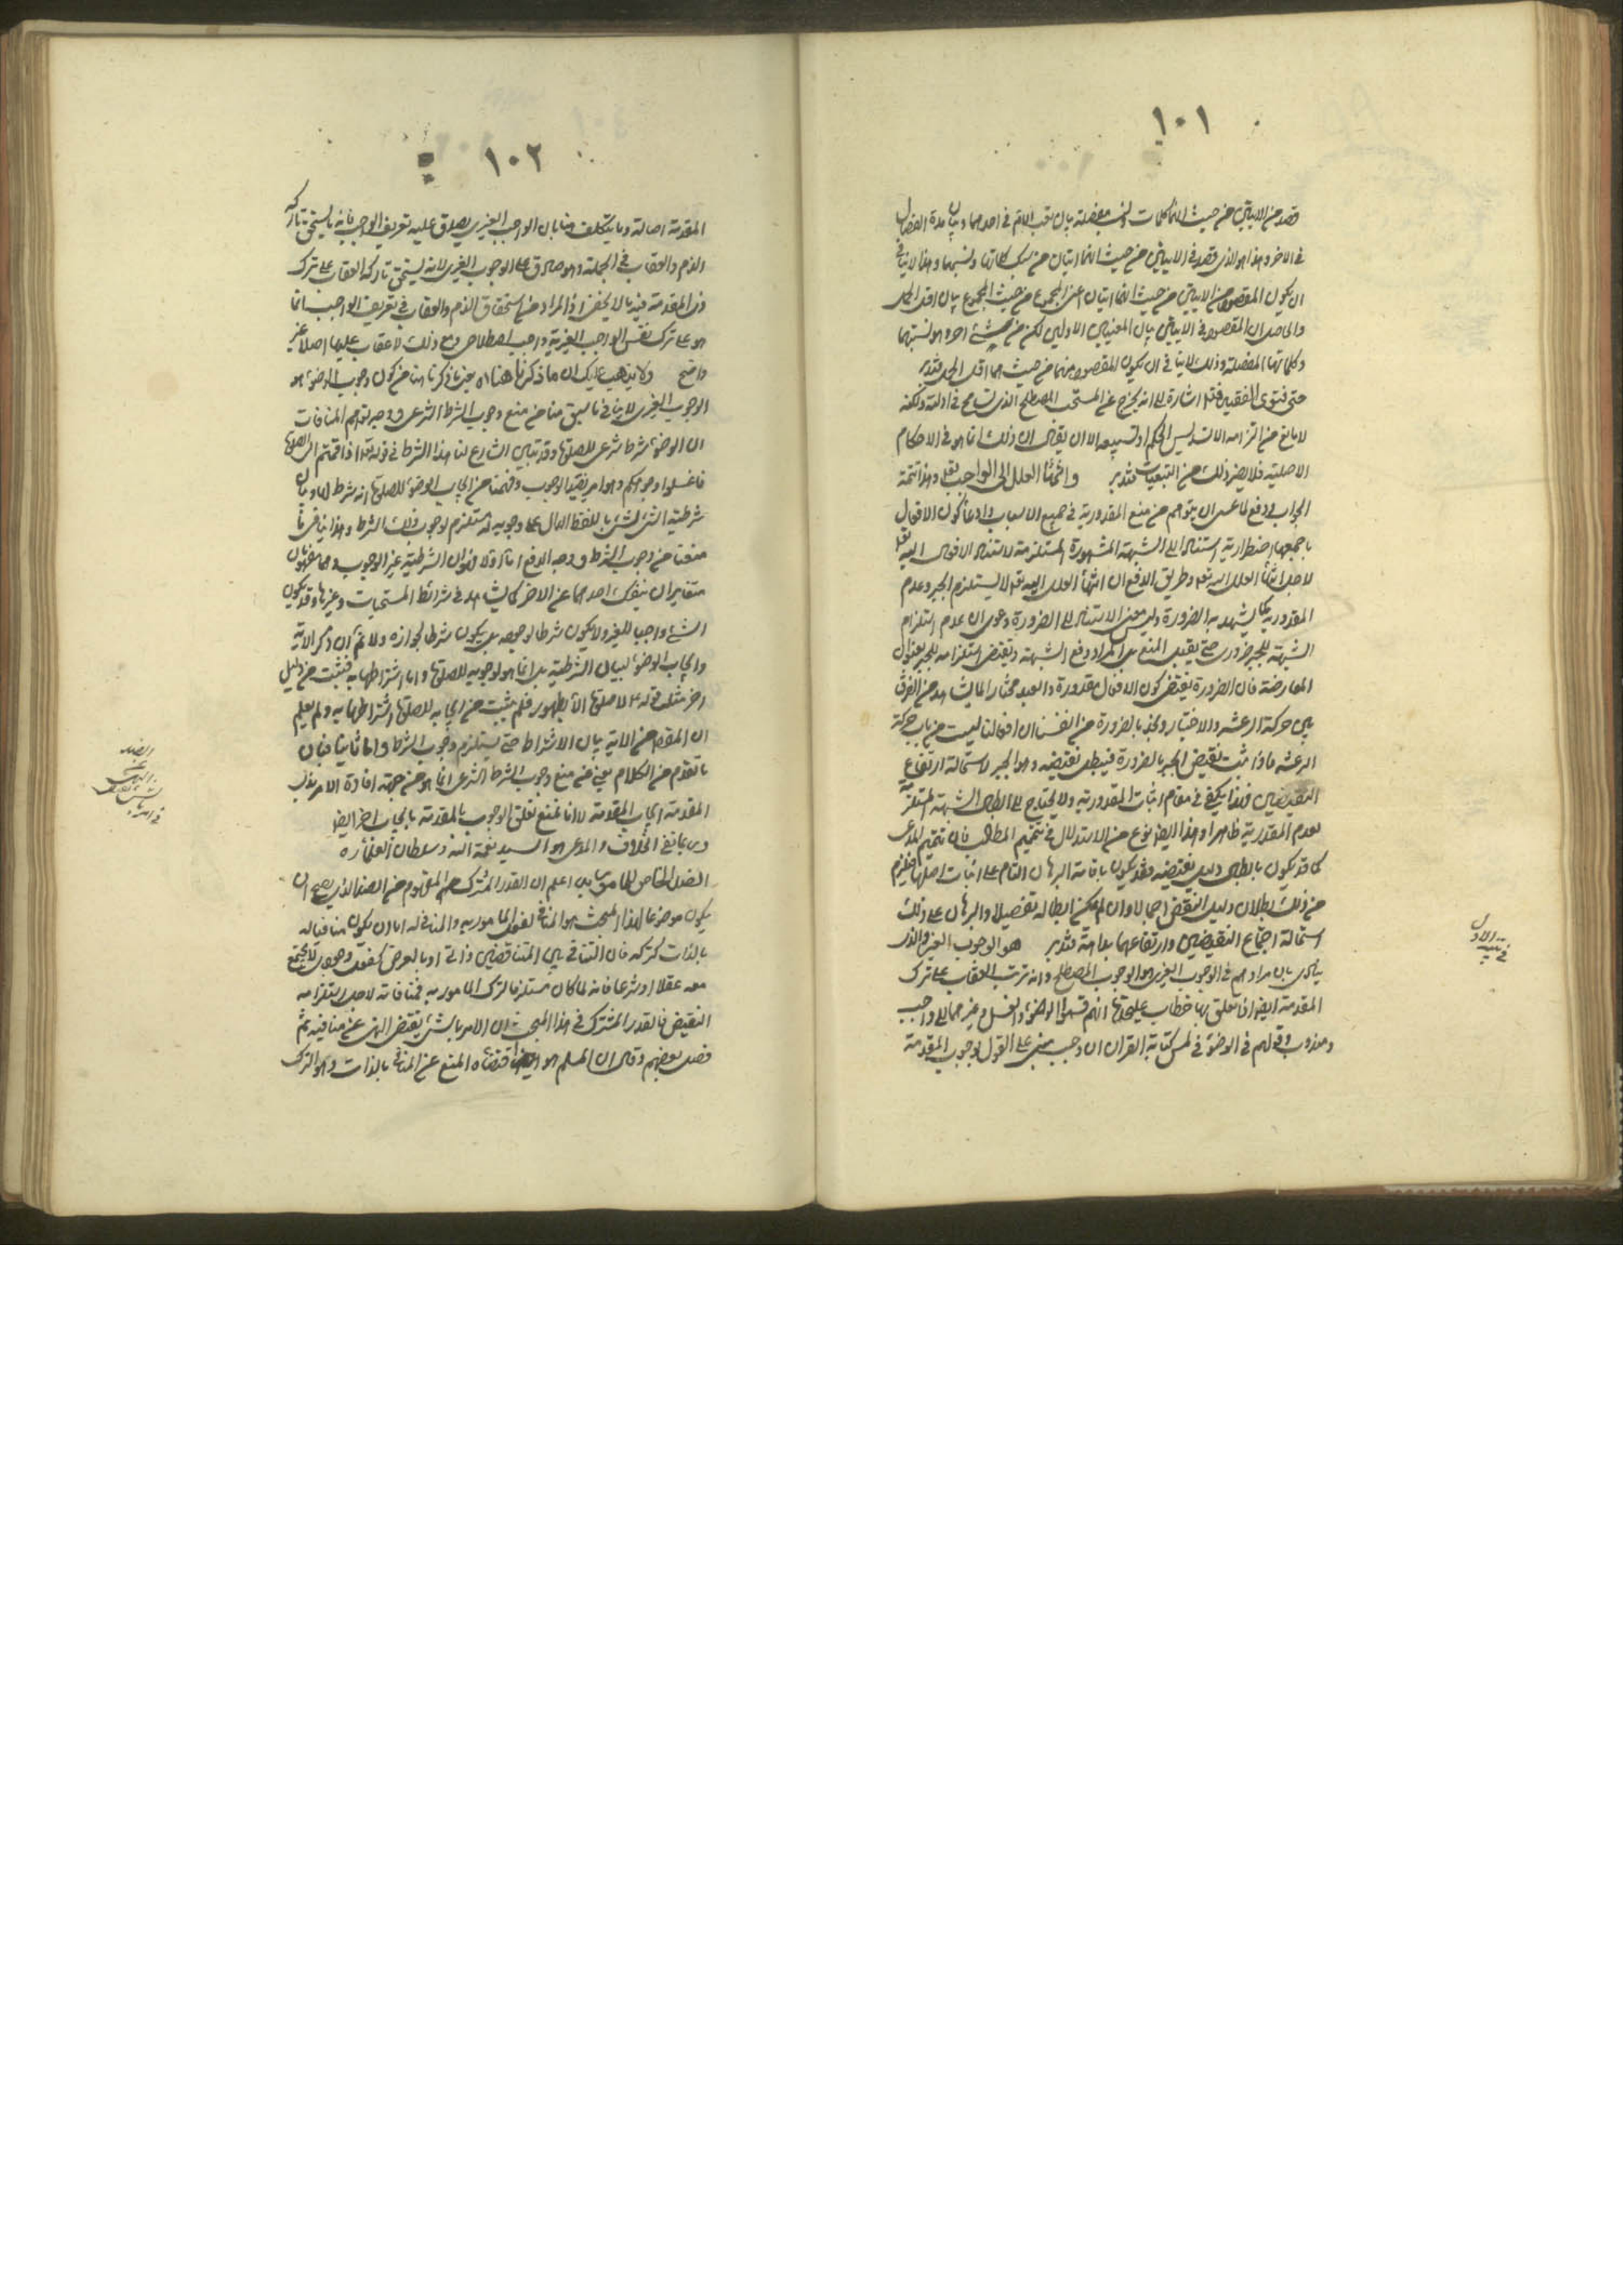 ١٠١
قصد من الايتين من حيث انها كلمات ونسب مفصلة بيان تعب الام في احدهما وبيان مدة الفصال
في الاخر وهذا هو الذي قصد في الايتين من حيث انهما ايتان من كلماتها ونسبها وهذا لا ينافي
ان يكون المقصود من الايتين من حيث انهما ايتان اعني المجموع من حيث المجموع بيان اقل الحمل
والحاصل ان المقصود في الايتين بيان المعنيين الاولين لكن من حيث اخر وهو نسبتهما
وكلماتها المفصلة وذلك لا ينافي ان يكون المقصود منهما من حيث هما اقل الحمل فتدبر
حتى فتوى الفقيه فتم اشارة الى انه يخرج عن المستحب المصطلح الذي تسامح في ادلته ولكنه
لا مانع من التزامه الا تسديس الحكم او تسبيعه الا ان يقال ان ذلك انما هو في الاحكام
الاصلية فلا يضر ذلك من التبعيات فتدبر وانتهاء العلل الى الواجب تعالى وهذا تتمة
الجواب في دفع ما عسى ان يتوهم من منع المقدورية في جميع الاسباب وادعاء كون الافعال
باجمعها اضطرارية استنادا الى الشبهة المشهورة المستلزمة لاستناد الافعال اليه تعالى
لاجل انتهاء العلل اليه تعالى وطريق الدفع ان انتهاء العلل اليه تعالى لا يستلزم الجبر وعدم
المقدورية كما يشهد به الضرورة وليس معنى الاستناد الى الضرورة دعوى ان عدم استلزام
الشبهة للجبر ضروري حتى يقبل المنع بل المراد دفع الشبهة وبنقض استلزامه للجبر بعنوان
المعارضة فان الضرورة يقتضي كون الافعال مقدورة والعبد مختارا لما يشاهد من الفرق
بين حركة الرعشة والاختيار ونجد بالضرورة من انفسنا ان افعالنا ليست من باب حركة
الرعشة فاذا ثبت نقيض الجبر بالضرورة فيبطل نقيضه وهو الجبر لاستحالة ارتفاع
النقيضين فهذا يكفي في مقام اثبات المقدورية ولا يحتاج الى ابطال الشبهة المستلزمة
لعدم المقدورية ظاهرا وهذا ايضا نوع من الاستدلال في تتميم المطالب فان تتميم المدعى
كما قد يكون بابطال دليل نقيضه فقد يكون باقامة البرهان التام على اثبات اصلها فيلزم
من ذلك بطلان دليل النقيض اجمالا وان لم يمكن ابطاله تفصيلا والبرهان على ذلك
استحالة اجتماع النقيضين وارتفاعهما بداهة فتدبر هو الوجوب الغيري والذي
ينادي بان مرادهم في الوجوب الغيري هو الوجوب المصطلح وانه ترتب العقاب على ترك
المقدمة ايضا اذا تعلق بها خطاب عليحدة انهم قسموا الوضوء والغسل وغيرهما الى واجب
ومندوب وقولهم في الوضوء في لمس كتابة القران ان وجب مبني على القول بوجوب المقدمة
١٠٢
المقدمة اصالة وما يتكلف هنا بان الواجب الغيري يصدق عليه تعريف الواجب فانه ما يستحق تاركه
الذم والعقاب في الجملة وهو صادق على الوجوب الغيري لانه يستحق تاركه العقاب على ترك
ذي المقدمة فيه ما لا يخفى اذ المراد من استحقاق الذم والعقاب في تعريف الواجب انما
هو على ترك نفس الواجب الغيرية واجب اصطلاحي ومع ذلك لا عقاب عليها اصلا غير
واضح ولا يذهب عليك ان ما ذكرنا هنا اه يعني ما ذكرنا هنا من كون وجوب الوضوء هو
الوجوب الغيري لا ينافي ما سبق منا من منع وجوب الشرط الشرعي ووجه توهم المنافات
ان الوضوء شرط شرعي للصلوة وقد تبين الشارع لنا هذا الشرط في قوله تعالى اذا قمتم الى الصلوة
فاغسلوا وجوهكم وهو امر يفيد الوجوب وفهمنا من ايجاب الوضوء للصلوة انه شرط لها وبيان
شرطية الشيء لشيء باللفظ الدال على وجوبه له يستلزم لوجوب ذلك الشرط وهذا ينافي ما
منعنا من وجوب الشرط ووجه الدفع اما اولا فنقول الشرطية غير الوجوب وهما مفهومان
متغايران ينفك احدهما عن الاخر كما يشاهد في شرائط المستحبات وغيرها وقد يكون
الشيء واجبا للغير ولا يكون شرطا لوجوبه بل يكون شرطا لجوازه ولا نم ان ذكر الاية
وايجاب الوضوء لبيان الشرطية بل انما هو لوجوبه للصلوة واما اشتراطها به فيثبت من دليل
اخر مثل قوله ع لا صلوة الا بطهور فلم يثبت من ايجابه للصلوة اشتراطها به ولم يعلم
ان المقصود من الاية بيان الاشتراط حتى يستلزم وجوب الشرط واما ثانيا فبان
ما تقدم من الكلام يعني من منع وجوب الشرط الشرعي انما هو من جهة افادة الامر بذي
المقدمة ايجاب المقدمة لا انا نمنع تعلق الوجوب بالمقدمة بايجاب اخر ايضا
مدعيا نفي الخلاف والمدعي هو السيد نعمة الله وسلطان العلماء ره
الضد الخاص للمامور به اعلم ان القدر المشترك المفهوم من الضد الذي يصح ان
يكون موضوعا لهذا المبحث هو المنافي لفعل المامور به والمنافي له اما ان يكون منافيا له
بالذات كتركه فان التنافي بين المتناقضين ذاتي او بالعرض كفعل وجودي لا يجتمع
معه عقلا او شرعا فانه لما كان مستلزما لترك المامور به فمنافاته لاجل استلزامه
النقيض فالقدر المشترك في هذا المبحث ان الامر بالشيء يقتضي النهي عن منافيه ثم
فصل بعضهم وقال ان المسلم هو اقتضاء المنع عن المنافي بالذات وهو الترك